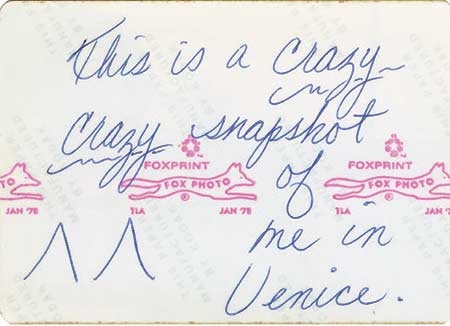 This is a crazy
crazy snapshot
of
me in
Venice.
FOXPRINT
FOX PHOTO
®
TLA
JAN '78
FOXPRINT
FOX PHOTO
®
TLA
JAN '78
JAN '78